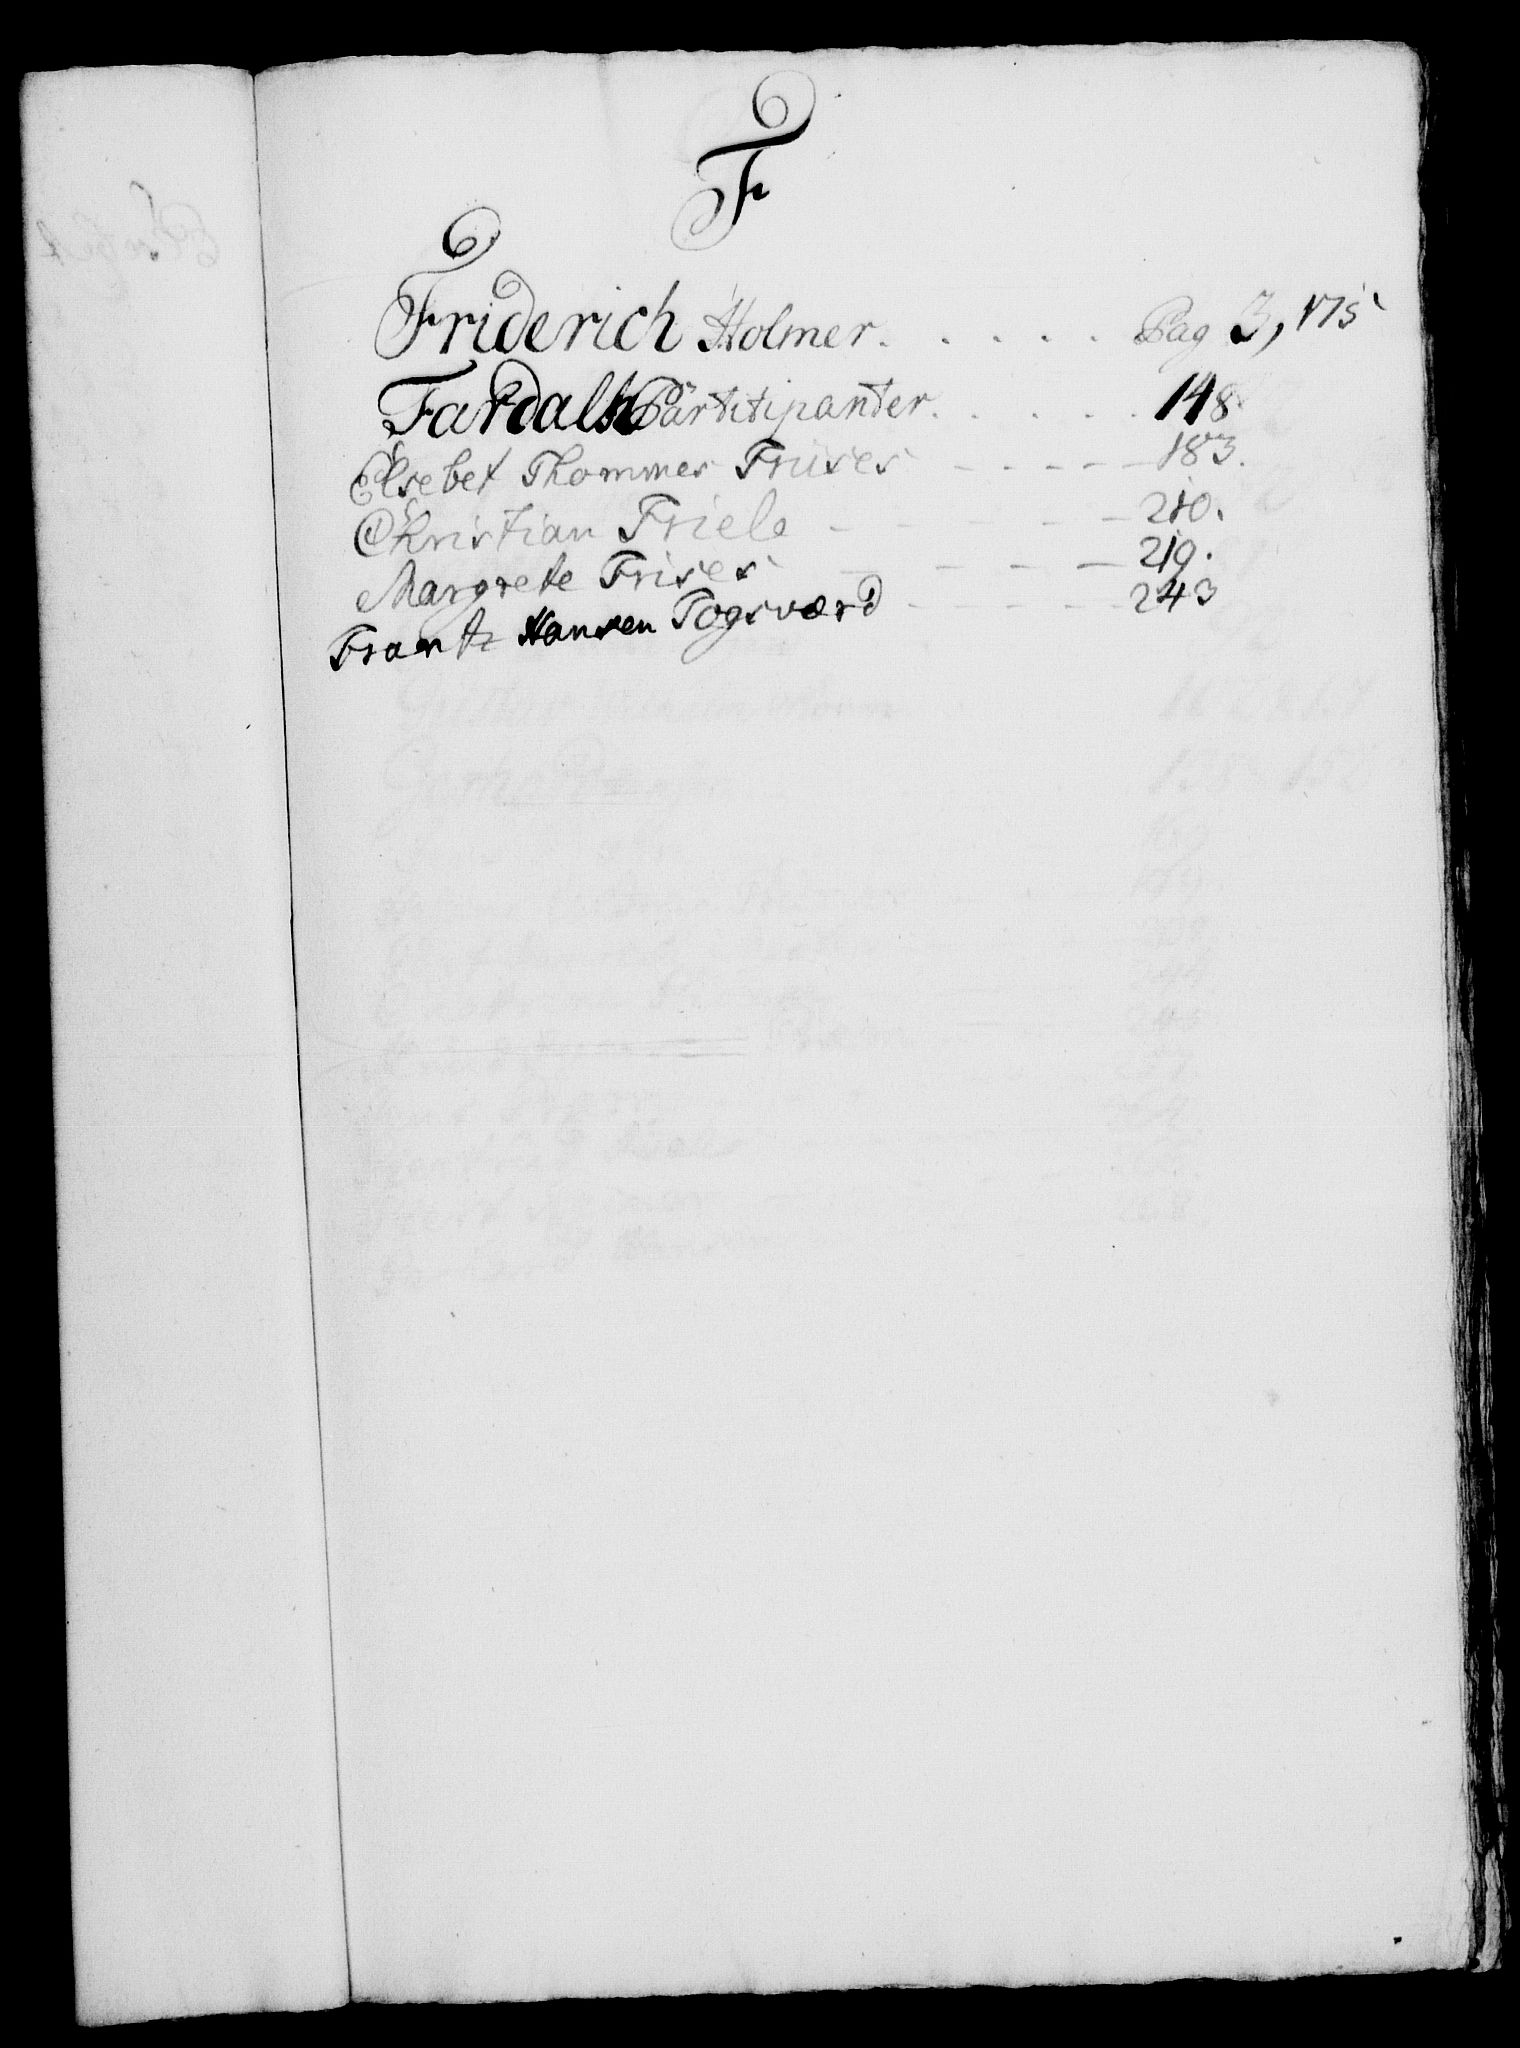 F
Friderich Holmer. . . . . . Pag 3, 175
Fardalsk Partitipanter. . . . . . 148
Elsebet Thommes Friises - - - - - 183.
Christian Friele - - - - - - 210.
Margrete Frises - - - - - 219.
Frantz Hansen Togsværd - - - - - 243